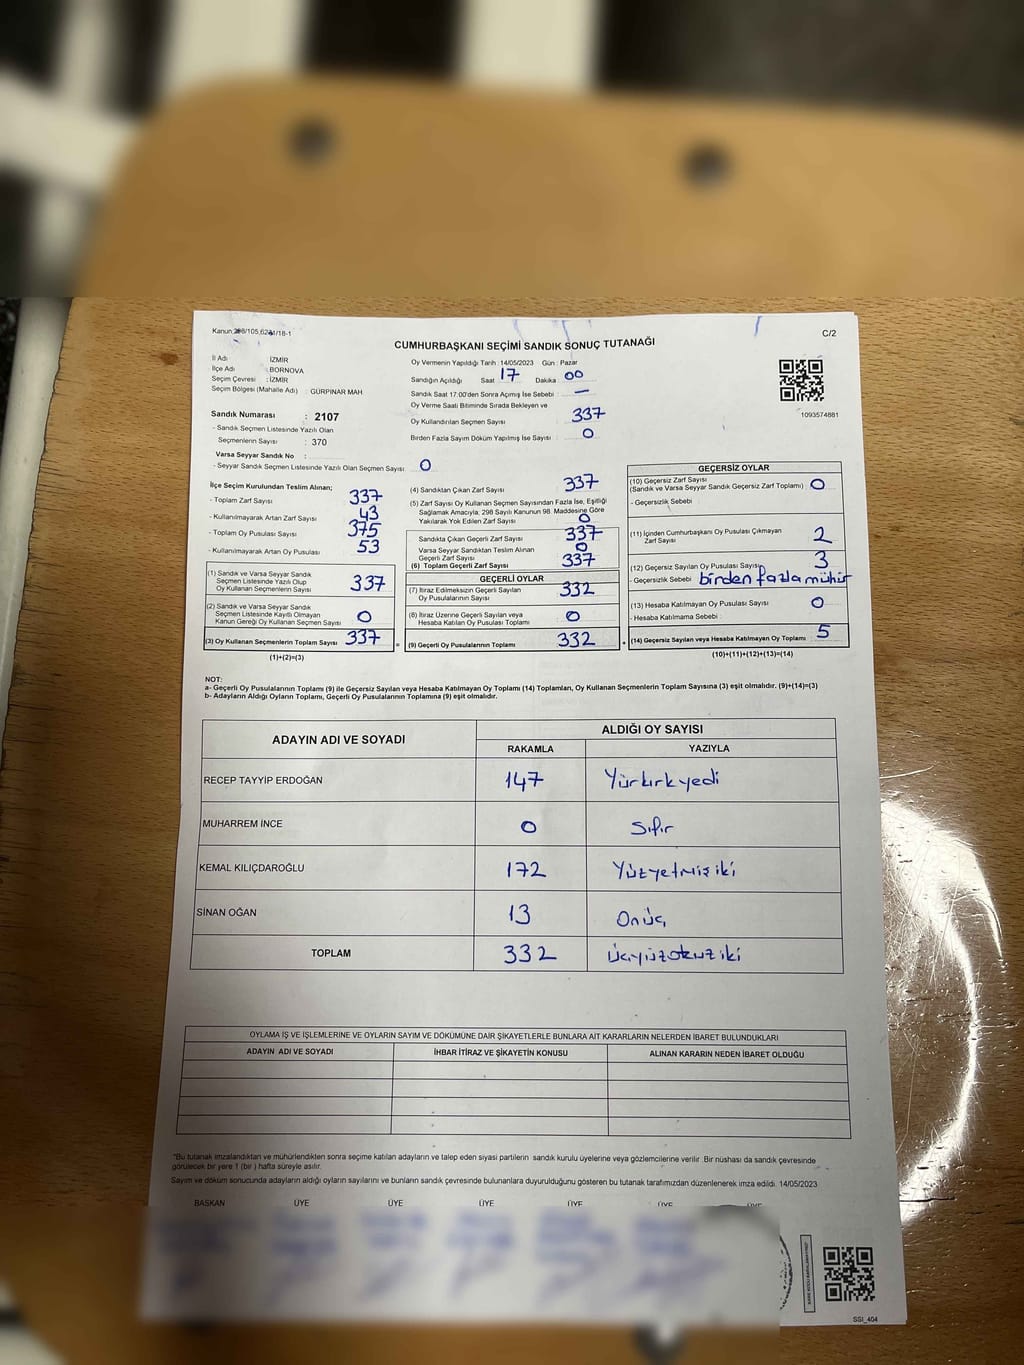 C/2
CUMHURBAŞKANI SEÇİMİ SANDIK SONUÇ TUTANAĞI
İl Adı : İZMİR
İlçe Adı : BORNOVA
Seçim Çevresi : İZMİR
Seçim Bölgesi (Mahalle Adı) : GÜRPINAR MAH.
Sandık Numarası : 2107
- Sandık Seçmen Listesinde Yazılı Olan
Seçmenlerin Sayısı : 370
Varsa Seyyar Sandık No :
- Seyyar Sandık Seçmen Listesinde Yazılı Olan Seçmen Sayısı : 0
Oy Vermenin Yapıldığı Tarih : 14/05/2023 Gün : Pazar
Sandığın Açıldığı Saat 17 Dakika 00
Sandık Saat 17.00'den Sonra Açılmış İse Sebebi : —
Oy Verme Saati Bitiminde Sırada Bekleyen ve
Oy Kullandırılan Seçmen Sayısı : 337
Birden Fazla Sayım Döküm Yapılmış İse Sayısı : 0
1093574881
İlçe Seçim Kurulundan Teslim Alınan;
- Toplam Zarf Sayısı : 337
- Kullanılmayarak Artan Zarf Sayısı : 43
- Toplam Oy Pusulası Sayısı : 375
- Kullanılmayarak Artan Oy Pusulası : 53
(1) Sandık ve Varsa Seyyar Sandık
Seçmen Listesinde Yazılı Olup
Oy Kullanan Seçmenlerin Sayısı : 337
(2) Sandık ve Varsa Seyyar Sandık
Seçmen Listesinde Kayıtlı Olmayan
Kanun Gereği Oy Kullanan Seçmen Sayısı : 0
(3) Oy Kullanan Seçmenlerin Toplam Sayısı : 337
(1)+(2)=(3)
(4) Sandıktan Çıkan Zarf Sayısı : 337
(5) Zarf Sayısı Oy Kullanan Seçmen Sayısından Fazla İse, Eşitliği
Sağlamak Amacıyla, 298 Sayılı Kanunun 98. Maddesine Göre
Yakılarak Yok Edilen Zarf Sayısı : 0
Sandıkta Çıkan Geçerli Zarf Sayısı : 337
Varsa Seyyar Sandıktan Teslim Alınan
Geçerli Zarf Sayısı : 0
(6) Toplam Geçerli Zarf Sayısı : 337
GEÇERLİ OYLAR
(7) İtiraz Edilmeksizin Geçerli Sayılan
Oy Pusulalarının Sayısı : 332
(8) İtiraz Üzerine Geçerli Sayılan veya
Hesaba Katılan Oy Pusulası Toplamı : 0
(9) Geçerli Oy Pusulalarının Toplamı : 332
GEÇERSİZ OYLAR
(10) Geçersiz Zarf Sayısı
(Sandık ve Varsa Seyyar Sandık Geçersiz Zarf Toplamı) : 0
- Geçersizlik Sebebi :
(11) İçinden Cumhurbaşkanı Oy Pusulası Çıkmayan
Zarf Sayısı : 2
(12) Geçersiz Sayılan Oy Pusulası Sayısı : 3
- Geçersizlik Sebebi : birden fazla mühür
(13) Hesaba Katılmayan Oy Pusulası Sayısı : 0
- Hesaba Katılmama Sebebi :
(14) Geçersiz Sayılan veya Hesaba Katılmayan Oy Toplamı : 5
(10)+(11)+(12)+(13)=(14)
NOT:
a- Geçerli Oy Pusulalarının Toplamı (9) ile Geçersiz Sayılan veya Hesaba Katılmayan Oy Toplamı (14) Toplamları, Oy Kullanan Seçmenlerin Toplam Sayısına (3) eşit olmalıdır. (9)+(14)=(3)
b- Adayların Aldığı Oyların Toplamı, Geçerli Oy Pusulalarının Toplamına (9) eşit olmalıdır.
ADAYIN ADI VE SOYADI ALDIĞI OY SAYISI
RAKAMLA YAZIYLA
RECEP TAYYİP ERDOĞAN 147 Yürkırkyedi
MUHARREM İNCE 0 Sıfır
KEMAL KILIÇDAROĞLU 172 Yüzyetmişiki
SİNAN OĞAN 13 Onüç
TOPLAM 332 Üçyüzotuziki
OYLAMA İŞ VE İŞLEMLERİNE VE OYLARIN SAYIM VE DÖKÜMÜNE DAİR ŞİKAYETLERLE BUNLARA AİT KARARLARIN NELERDEN İBARET BULUNDUKLARI
ADAYIN ADI VE SOYADI İHBAR İTİRAZ VE ŞİKAYETİN KONUSU ALINAN KARARIN NEDEN İBARET OLDUĞU
"Bu tutanak imzalandıktan ve mühürlendikten sonra seçime katılan adayların ve talep eden siyasi partilerin sandık kurulu üyelerine veya gözlemcilerine verilir. Bir nüshası da sandık çevresinde
görülecek bir yere 1 (bir) hafta süreyle asılır.
Sayım ve döküm sonucunda adayların aldığı oyların sayılarını ve bunların sandık çevresinde bulunanlara duyurulduğunu gösteren bu tutanak tarafımızdan düzenlenerek imza edildi. 14/05/2023
BAŞKAN ÜYE ÜYE ÜYE ÜYE ÜYE ÜYE
SSI_404